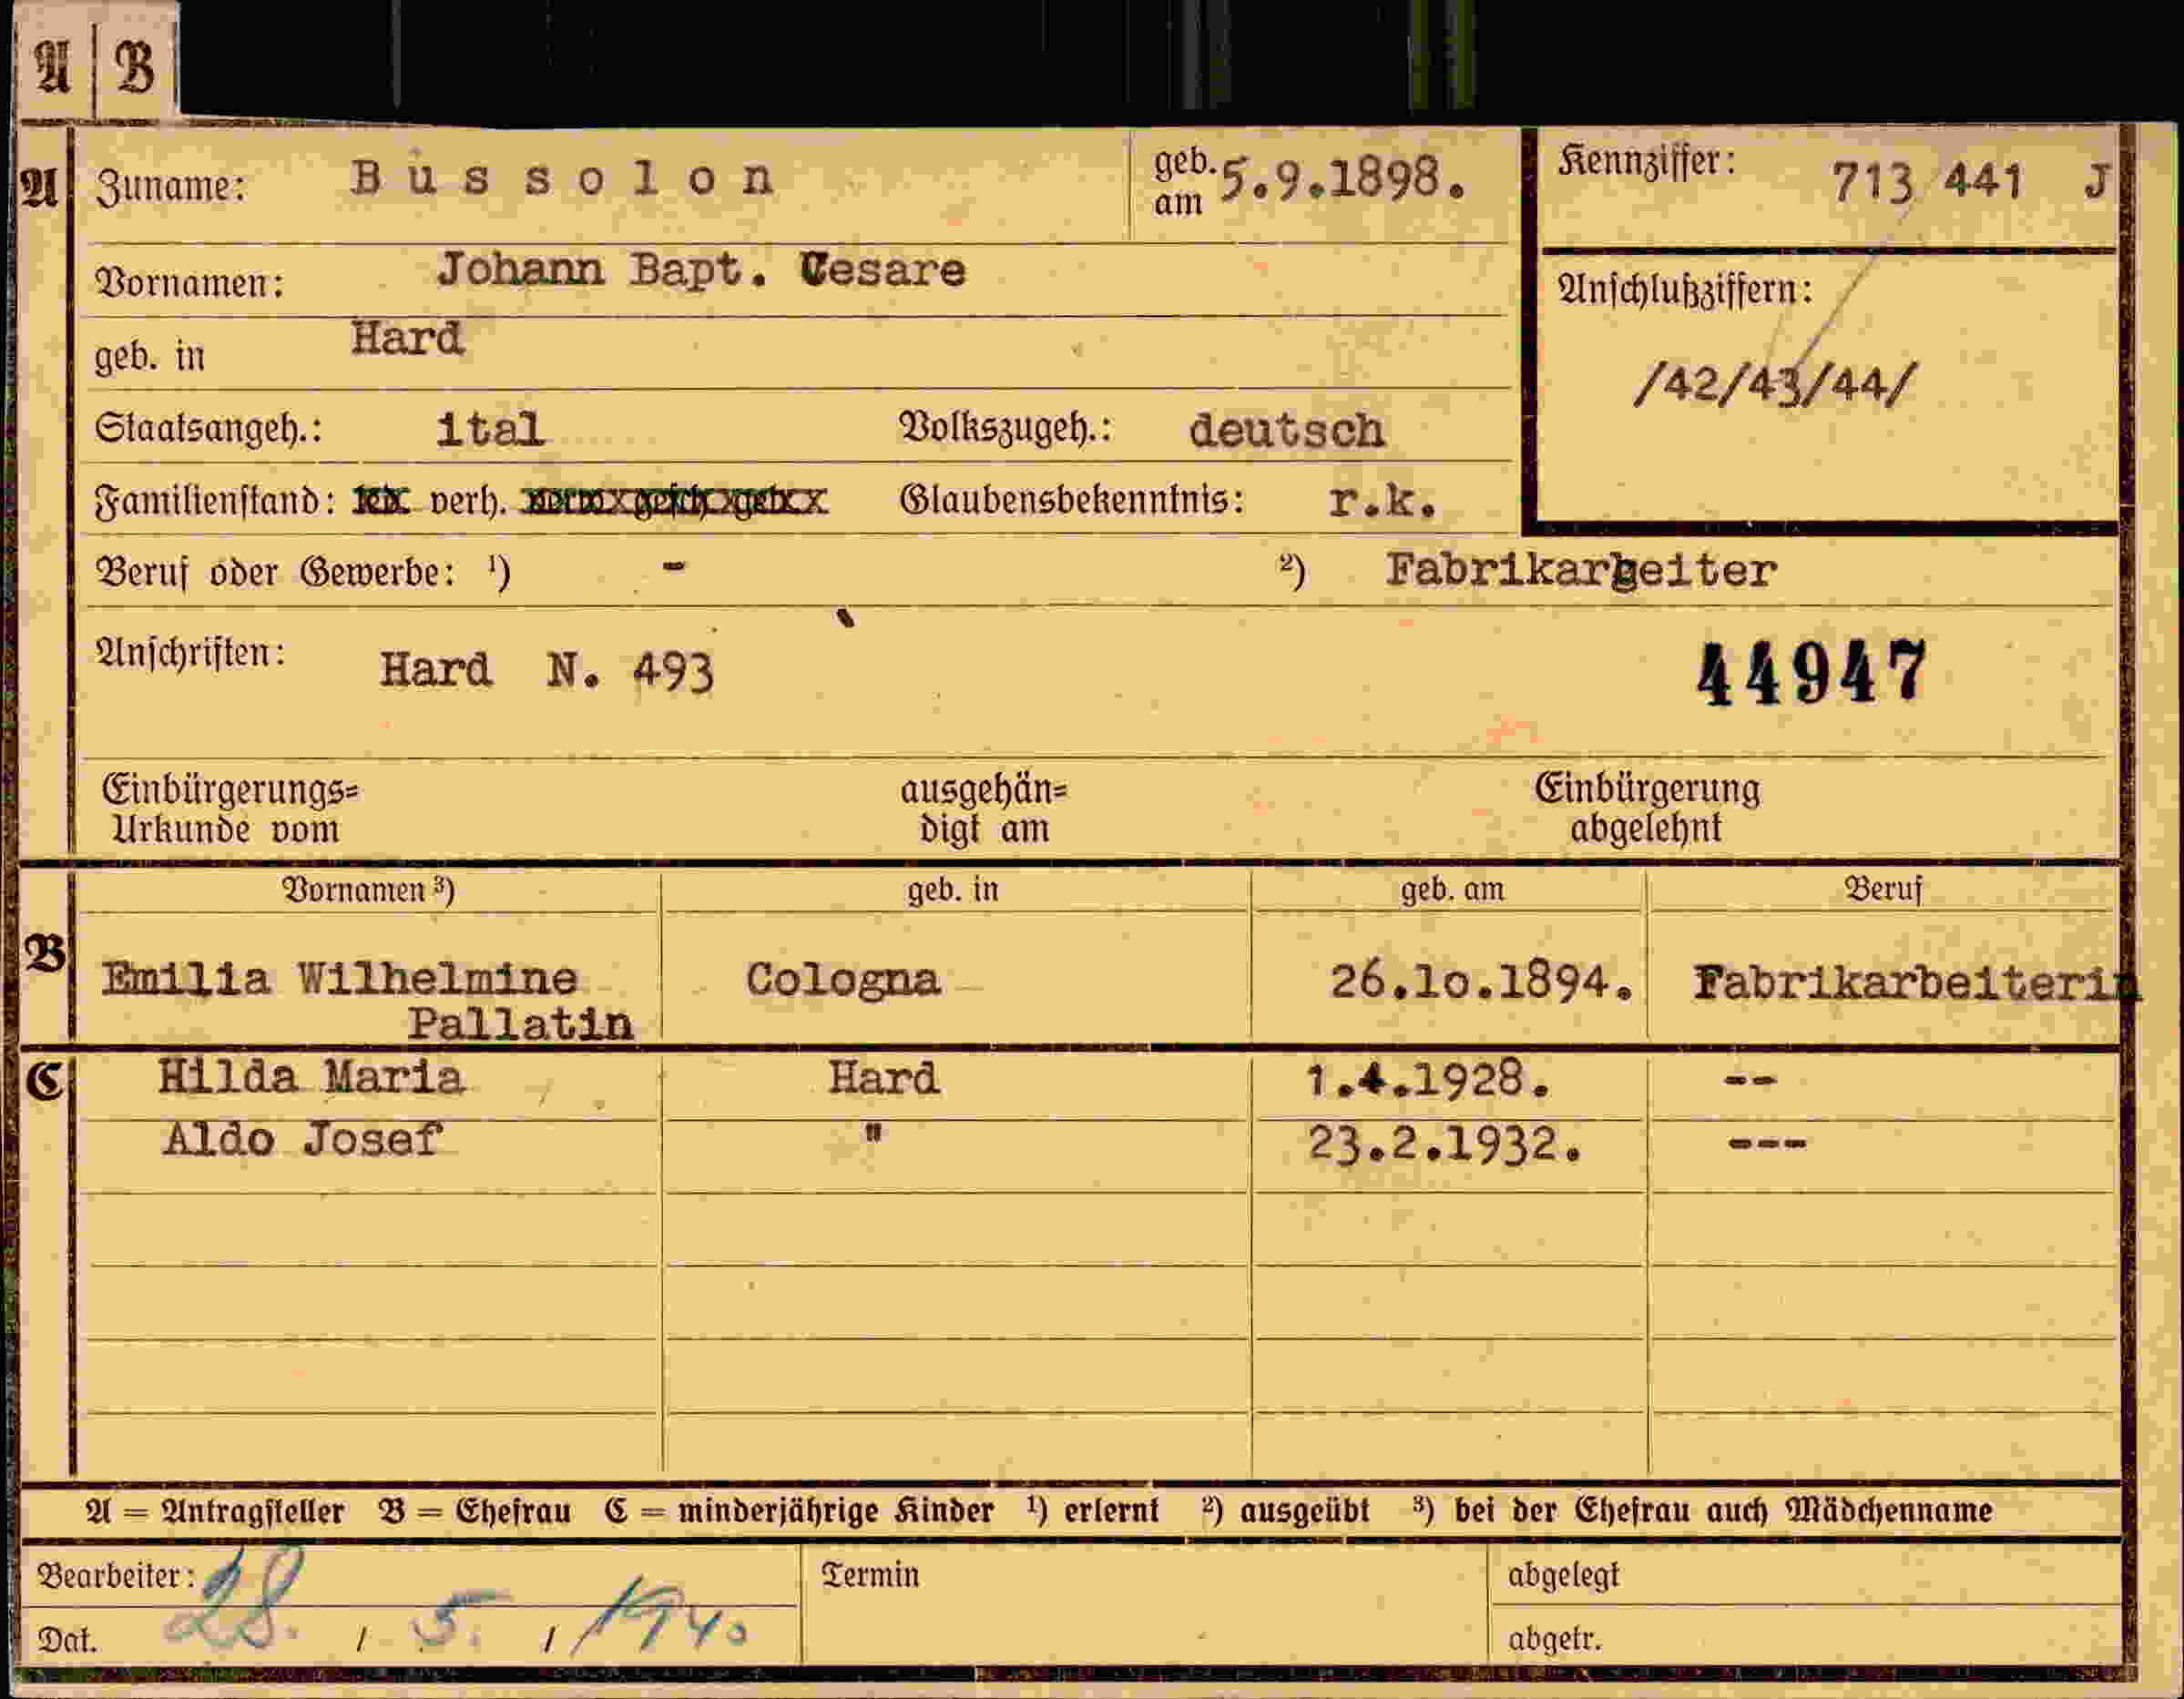 A | B
A Zuname: Bussolon geb. am 5.9.1898. Kennziffer: 713 441 J
Vornamen: Johann Bapt. Cesare
Anschlußziffern:
geb. in Hard
/42/43/44/
Staatsangeh.: ital Volkszugeh.: deutsch
Familienstand: verh. Glaubensbekenntnis: r.k.
Beruf oder Gewerbe: ¹) - ²) Fabrikarbeiter
Anschriften: Hard N. 493 44947
Einbürgerungs= ausgehän= Einbürgerung
Urkunde vom digt am abgelehnt
Vornamen ³) geb. in geb. am Beruf
B Emilia Wilhelmine Cologna 26.10.1894. Fabrikarbeiterin
Pallatin
C Hilda Maria Hard 1.4.1928. --
Aldo Josef " 23.2.1932. ---
A = Antragsteller B = Ehefrau C = minderjährige Kinder ¹) erlernt ²) ausgeübt ³) bei der Ehefrau auch Mädchenname
Bearbeiter: Termin abgelegt
Dat. 28. / 5. / 1940 abgetr.